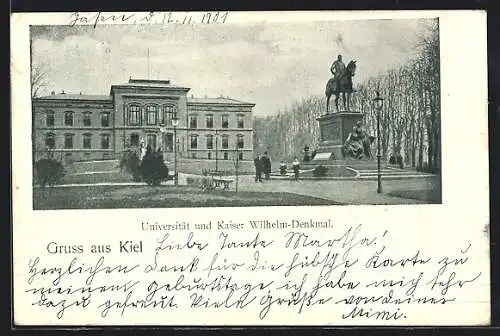 Hafen, d. 12. 11. 1901
Universität und Kaiser Wilhelm-Denkmal.
Gruss aus Kiel Liebe Tante Martha!
Herzlichen Dank für die hübsche Karte zu
meinem Geburtstage, ich habe mich sehr
dazu gefreut. Viele Grüße von deiner
Mimi.